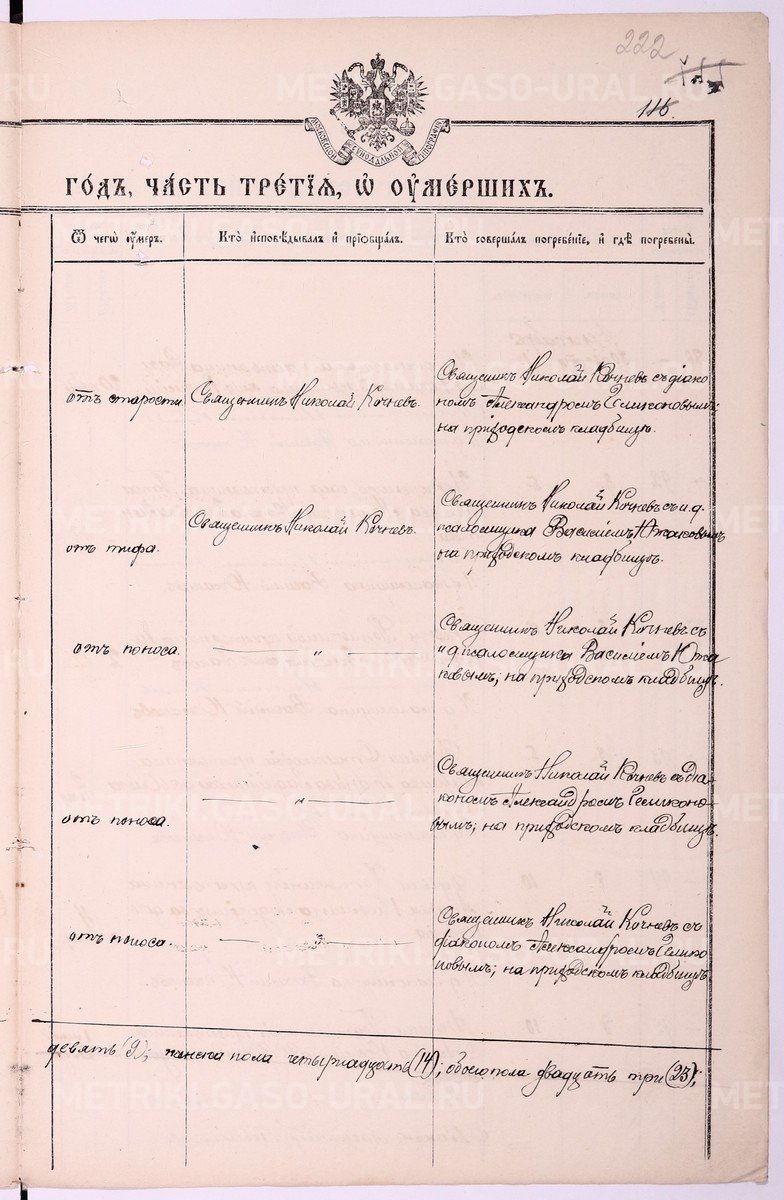 222
116.
МОСКОВСКОЙ СѴНОДАЛЬНОЙ ТИПОГРАФІИ
ГОДЪ, ЧАСТЬ ТРЕТІЯ, Ѡ ОУМЕРШИХЪ.
Ѿ чегѡ оумеръ.
Кто исповѣдывалъ и пріобщалъ.
Кто совершалъ погребеніе, и гдѣ погребены.
отъ старости
Священникъ Николай Кочневъ.
Священникъ Николай Кочневъ съ діако
номъ Александромъ Геликоновымъ;
на приходскомъ кладбищѣ.
отъ тифа.
Священникъ Николай Кочневъ.
Священникъ Николай Кочневъ съ и.д.
псаломщика Василіемъ Южаковымъ
на приходскомъ кладбищѣ.
отъ поноса.
— „ —
Священникъ Николай Кочневъ съ
и д псаломщика Василіемъ Южа
ковымъ; на приходскомъ кладбищѣ.
отъ поноса.
— „ —
Священникъ Николай Кочневъ съ діа-
кономъ Александромъ Геликоно
вымъ; на приходскомъ кладбищѣ.
отъ поноса.
— „ —
Священникъ Николай Кочневъ съ
діакономъ Александромъ Гелико
новымъ; на приходскомъ кладбищѣ
девять (9); женска пола четырнадцать (14); обоего пола двадцать три (23);
METRIKI.GASO-URAL.RU